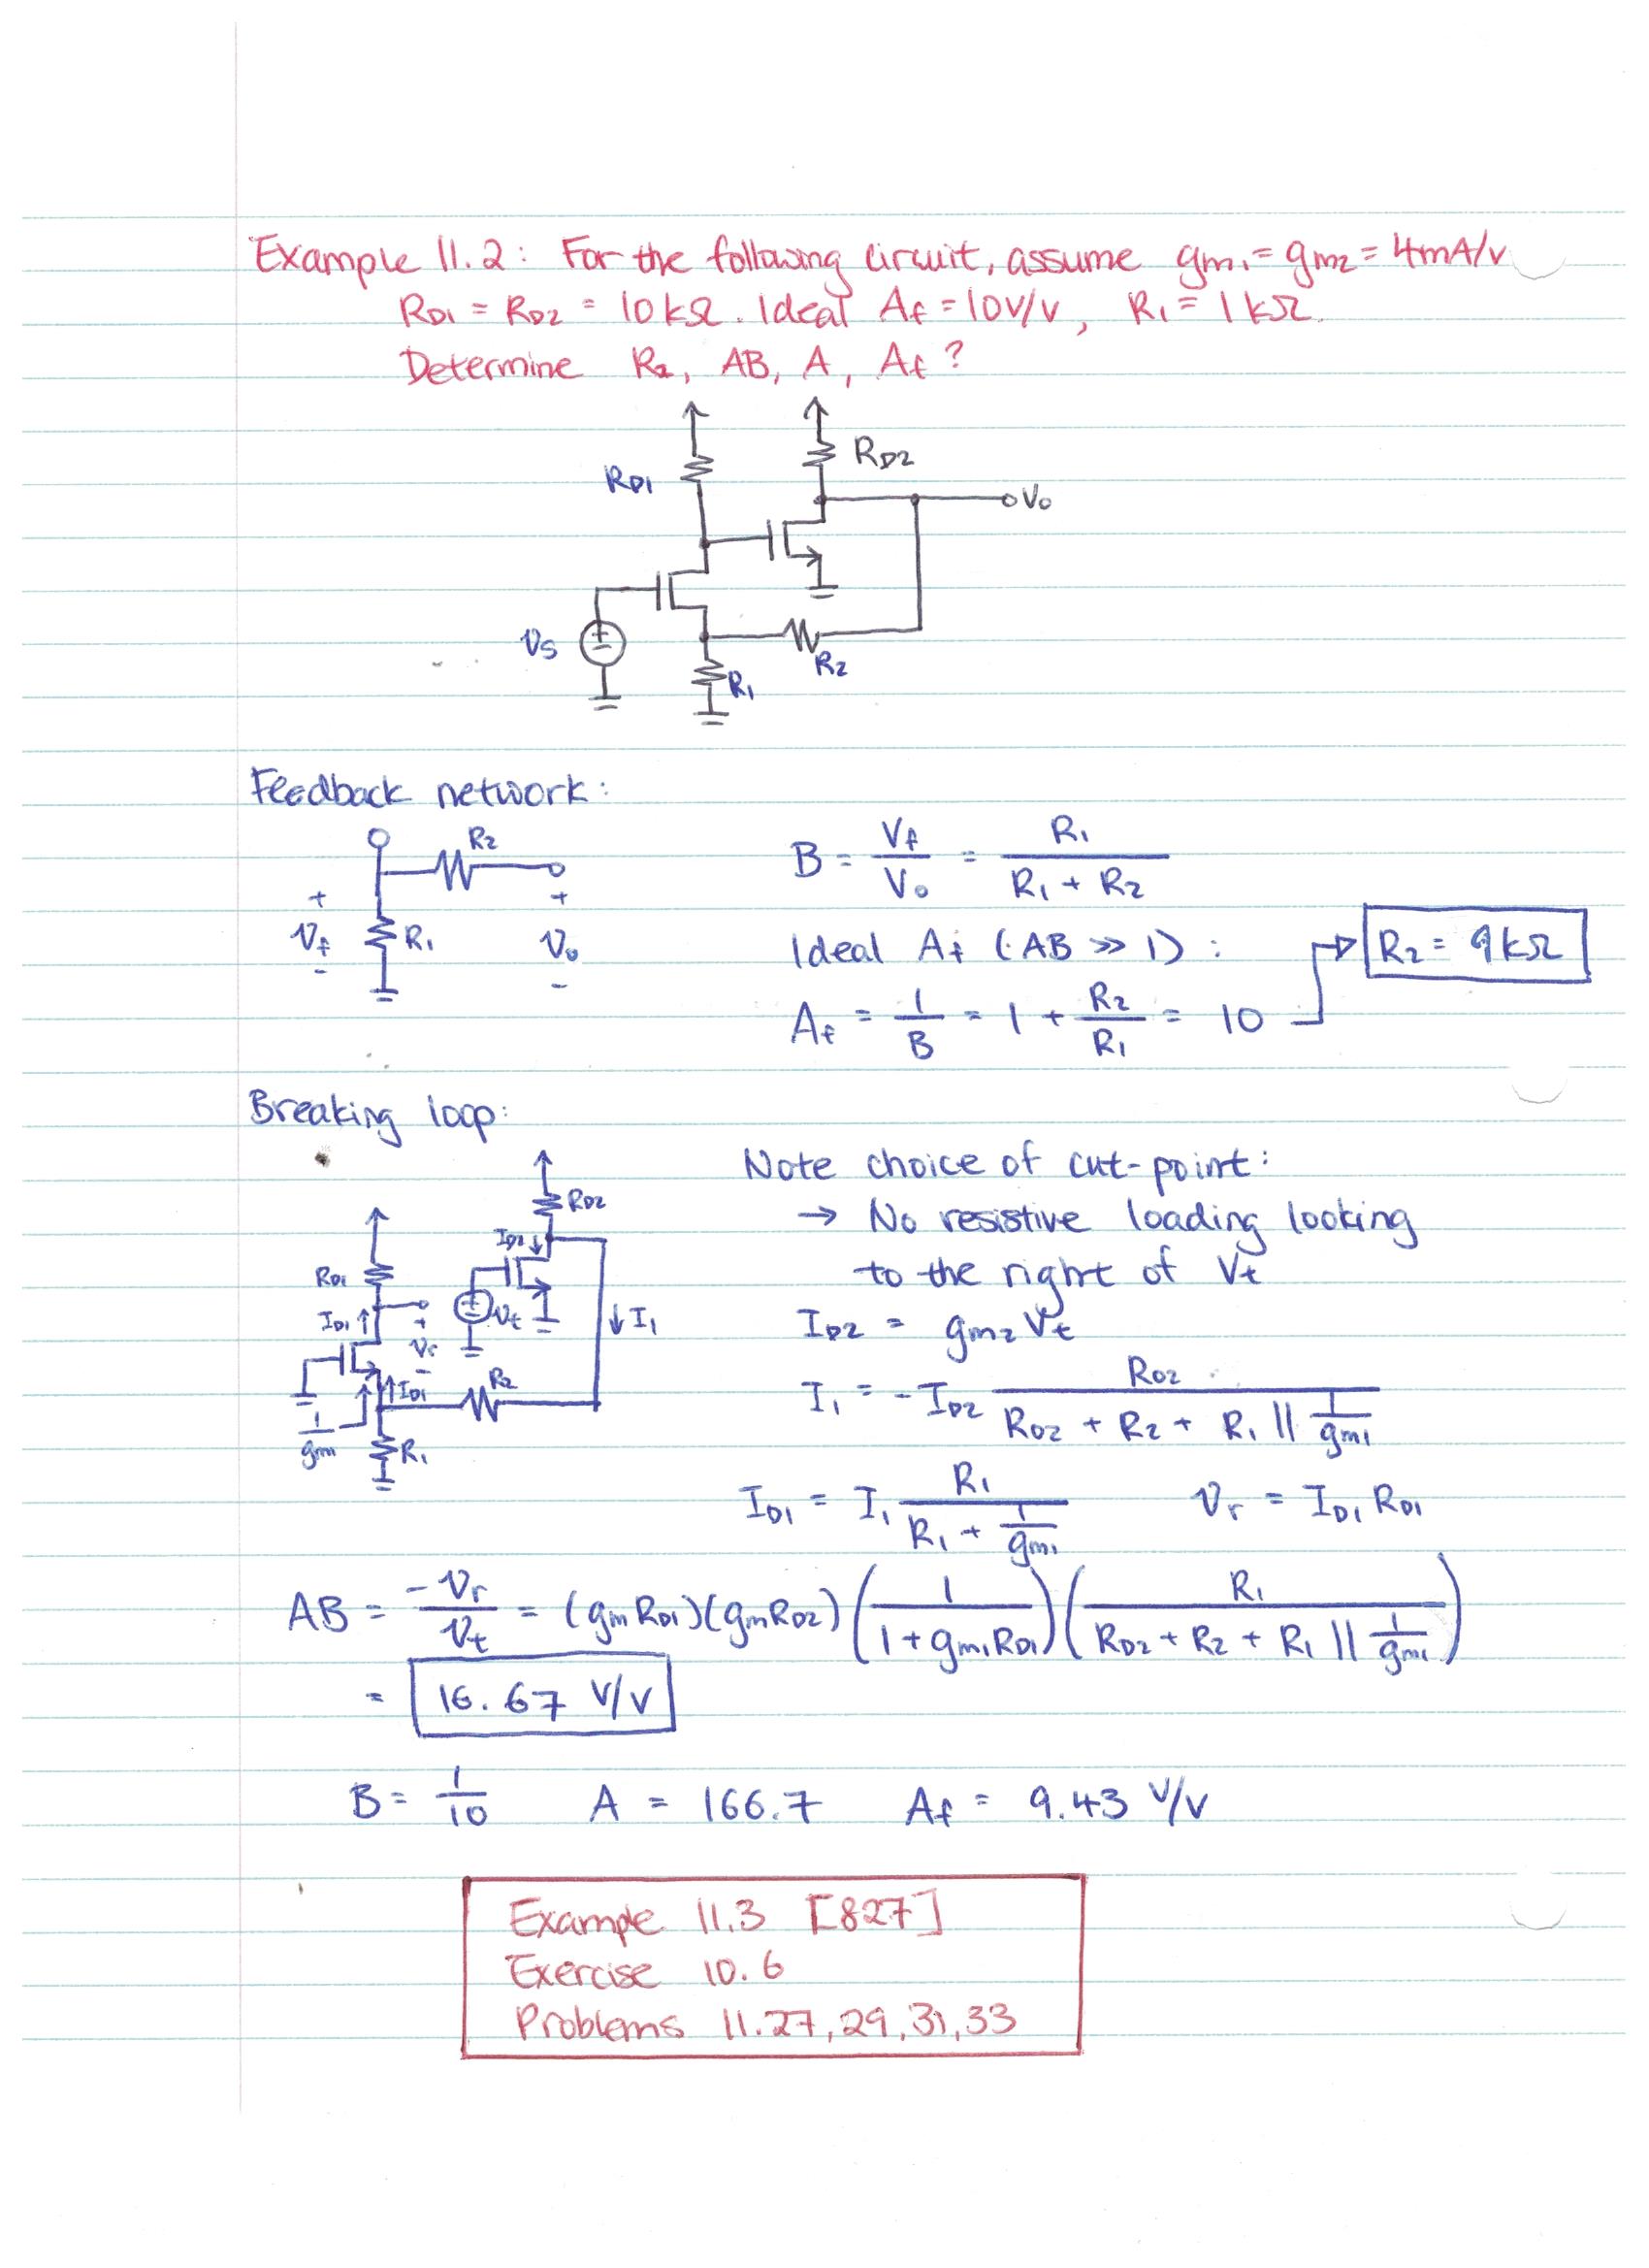 Example 11.2: For the following circuit, assume gm1 = gm2 = 4mA/V
RD1 = RD2 = 10kΩ. Ideal Af = 10V/V, R1 = 1kΩ.
Determine R2, AB, A, Af?
RD1
RD2
Vo
Vs
R2
R1
Feedback network:
R2
+ Vf -
R1
+ Vo -
B = Vf / Vo = R1 / (R1 + R2)
Ideal Af (AB ≫ 1):
R2 = 9kΩ
Af = 1/B = 1 + R2/R1 = 10
Breaking loop:
RD2
ID2 ↓
RD1
ID1 ↑
+ Vr -
Vt
↓ I1
↑ ID1
R2
1/gm1
R1
Note choice of cut-point:
→ No resistive loading looking
to the right of Vt
ID2 = gm2 Vt
I1 = -ID2 RD2 / (RD2 + R2 + R1 || 1/gm1)
ID1 = I1 R1 / (R1 + 1/gm1) Vr = ID1 RD1
AB = -Vr / Vt = (gm RD1)(gm RD2) (1 / (1 + gm1 RD1)) (R1 / (RD2 + R2 + R1 || 1/gm1))
= 16.67 V/V
B = 1/10 A = 166.7 Af = 9.43 V/V
Example 11.3 [827]
Exercise 10.6
Problems 11.27, 29, 31, 33